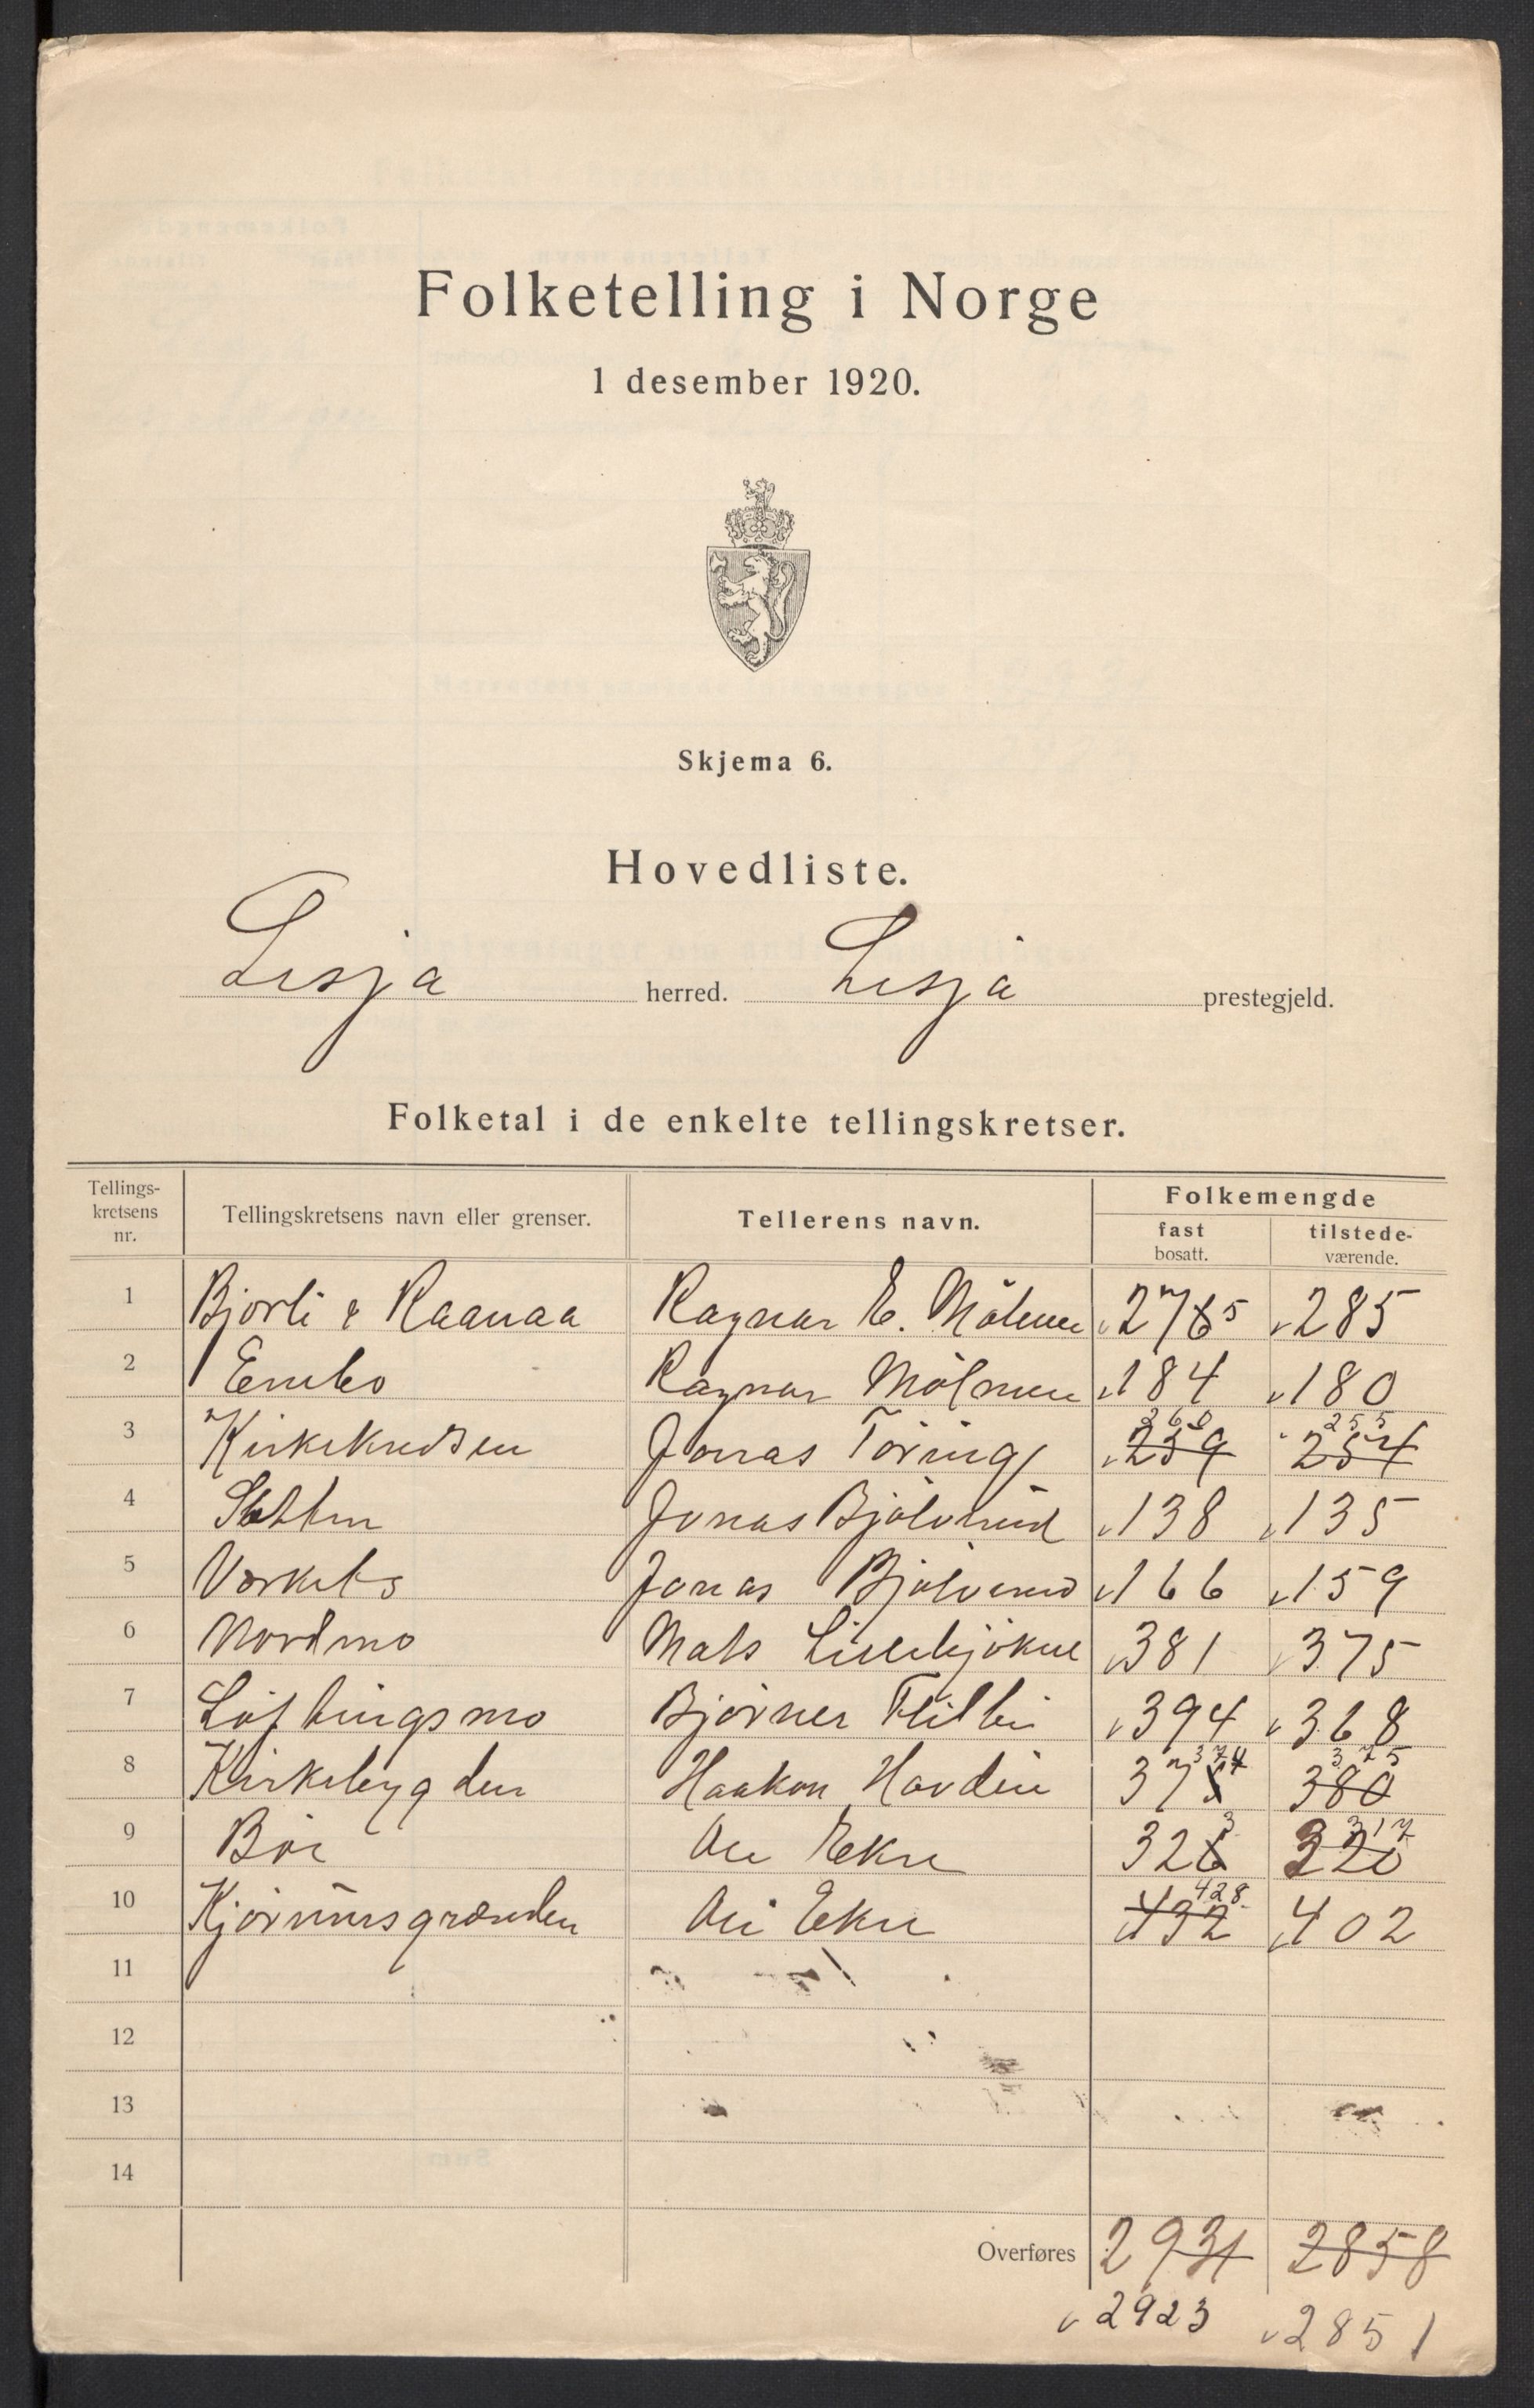 Folketelling i Norge
1 desember 1920.
Skjema 6.
Hovedliste.
Lesja herred. Lesja prestegjeld.
Folketal i de enkelte tellingskretser.
Tellings-kretsens nr. Tellingskretsens navn eller grenser. Tellerens navn. Folkemengde
fast bosatt. tilstede-værende.
1 Bjorli & Raanaa Ragnar E. Mölmen 275 285
2 Enebo Ragnar Mölmen 184 180
3 Kirkekredsen Jonas 259 260 254 255
4 Jonas Bjölverud 138 135
5 Verkets Jonas Bjölverud 166 159
6 Nordmo Mats 381 375
7 Löftingsmo Björner 394 368
8 Kirkebygden Haakon Hovden 374 380 375
9 Böe Ole Ekre 326 3 320 317
10 Kjörumsgrænden Ole Ekre 432 428 402
11
12
13
14
Overføres 2931 2858
2923 2851